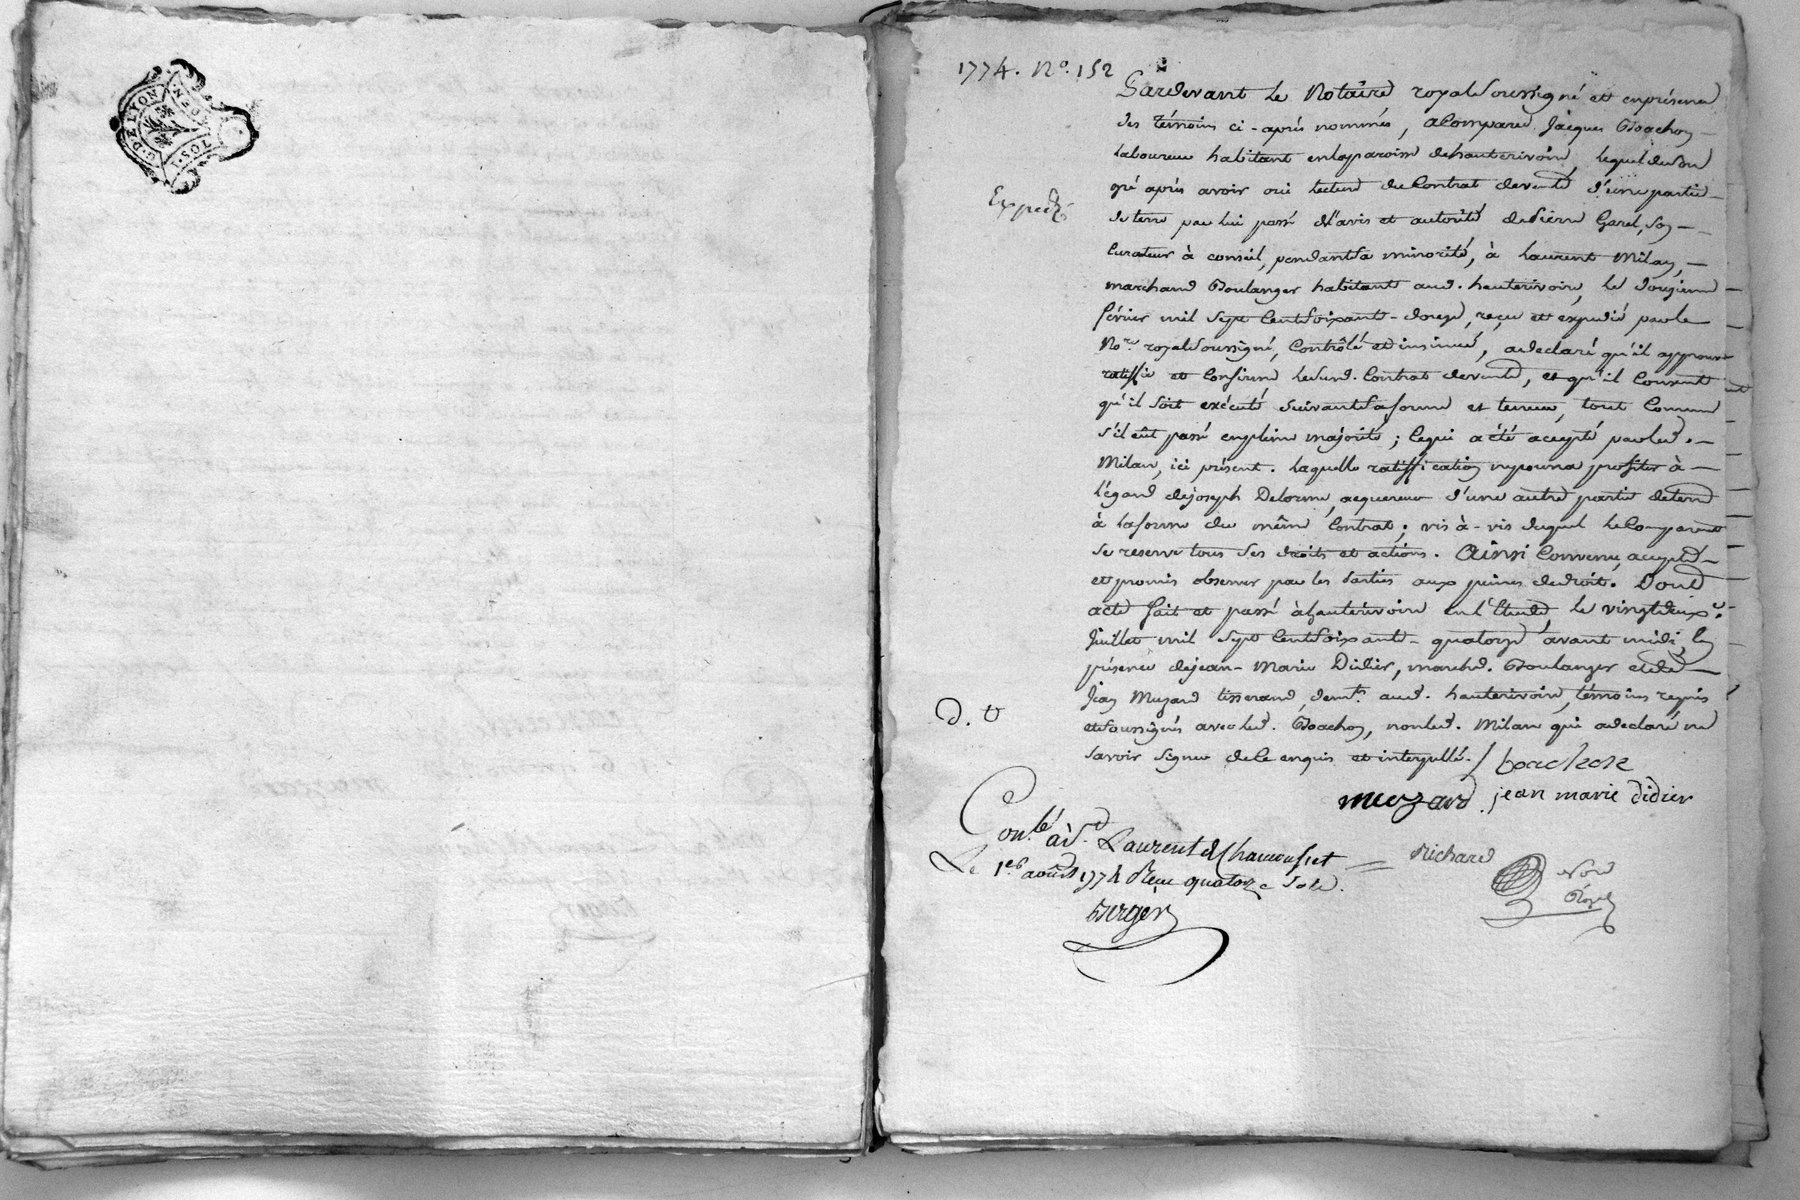 G. DE LYON
MOYEN
1. SOL
1774. N.º 152
Pardevant le Notaire royal soussigné et en présence
des témoins ci-après nommés, a Comparu Jacques Boachon
laboureur habitant en la paroisse de hauterivoire, lequel de son
gré après avoir oui lecture du Contrat de vente d'une partie
Expedié
de terre par lui passé de l'avis et autorité de pierre Garel, son
Curateur à conseil, pendant sa minorité, à Laurent Milan,
marchand Boulanger habitant aud. hauterivoire, le douzieme
février mil sept Cent soixante-douze, reçu et expedié par le
No.re royal soussigné, Contrôlé et insinué, a declaré qu'il approuve
ratiffie et Confirme led. Contrat de vente, et qu'il Consent
qu'il soit exécuté suivant sa forme et teneur, tout Comme
s'il eût passé en pleine majorité; ce qui a été accepté par led.
Milan, ici présent. laquelle ratiffication ne pourra profiter à
l'égard de joseph Delorme, acquereur d'une autre partie de terre
à la forme du même Contrat; vis à-vis duquel le Comparant
se reserve tous ses droits et actions. Ainsi Convenu, accepté
et promis observer par les parties aux peines de droit. Dont
acte fait et passé à hauterivoire en l'Etude, le vingt deux.e
Juillet mil sept Cent soixante-quatorze avant midi, en
présence de jean-Marie Didier, march.d Boulanger et de
Jean Muzard tisserand, dem.ts aud. hauterivoire, témoins requis
D. V
et soussignés avec led. Boachon, non led. Milan qui a declaré ne
savoir signer de ce enquis et interpellé. / boachon
muzard. jean marie didier
Con.lé à S.t Laurent de Chamousset
Le 1.er août 1774 Reçu quatorze sols.
Richard
No.re
Royal
Berger